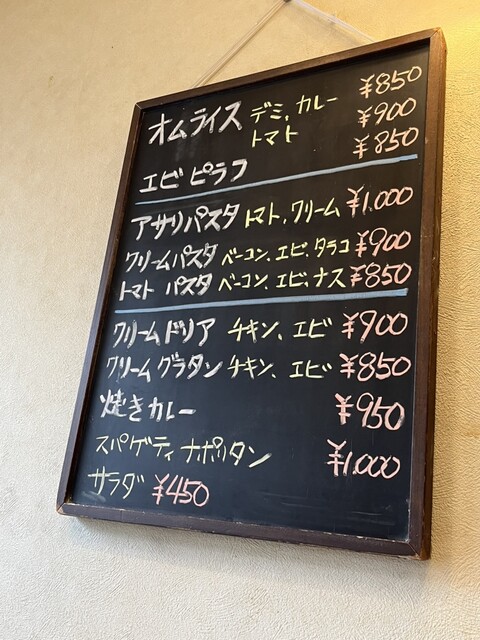 オムライス デミ、カレー ¥850
トマト ¥900
エビピラフ ¥850
アサリパスタ トマト、クリーム ¥1,000
クリームパスタ ベーコン、エビ、タラコ ¥900
トマト パスタ ベーコン、エビ、ナス ¥850
クリームドリア チキン、エビ ¥900
クリームグラタン チキン、エビ ¥850
焼きカレー ¥950
スパゲティ ナポリタン ¥1,000
サラダ ¥450